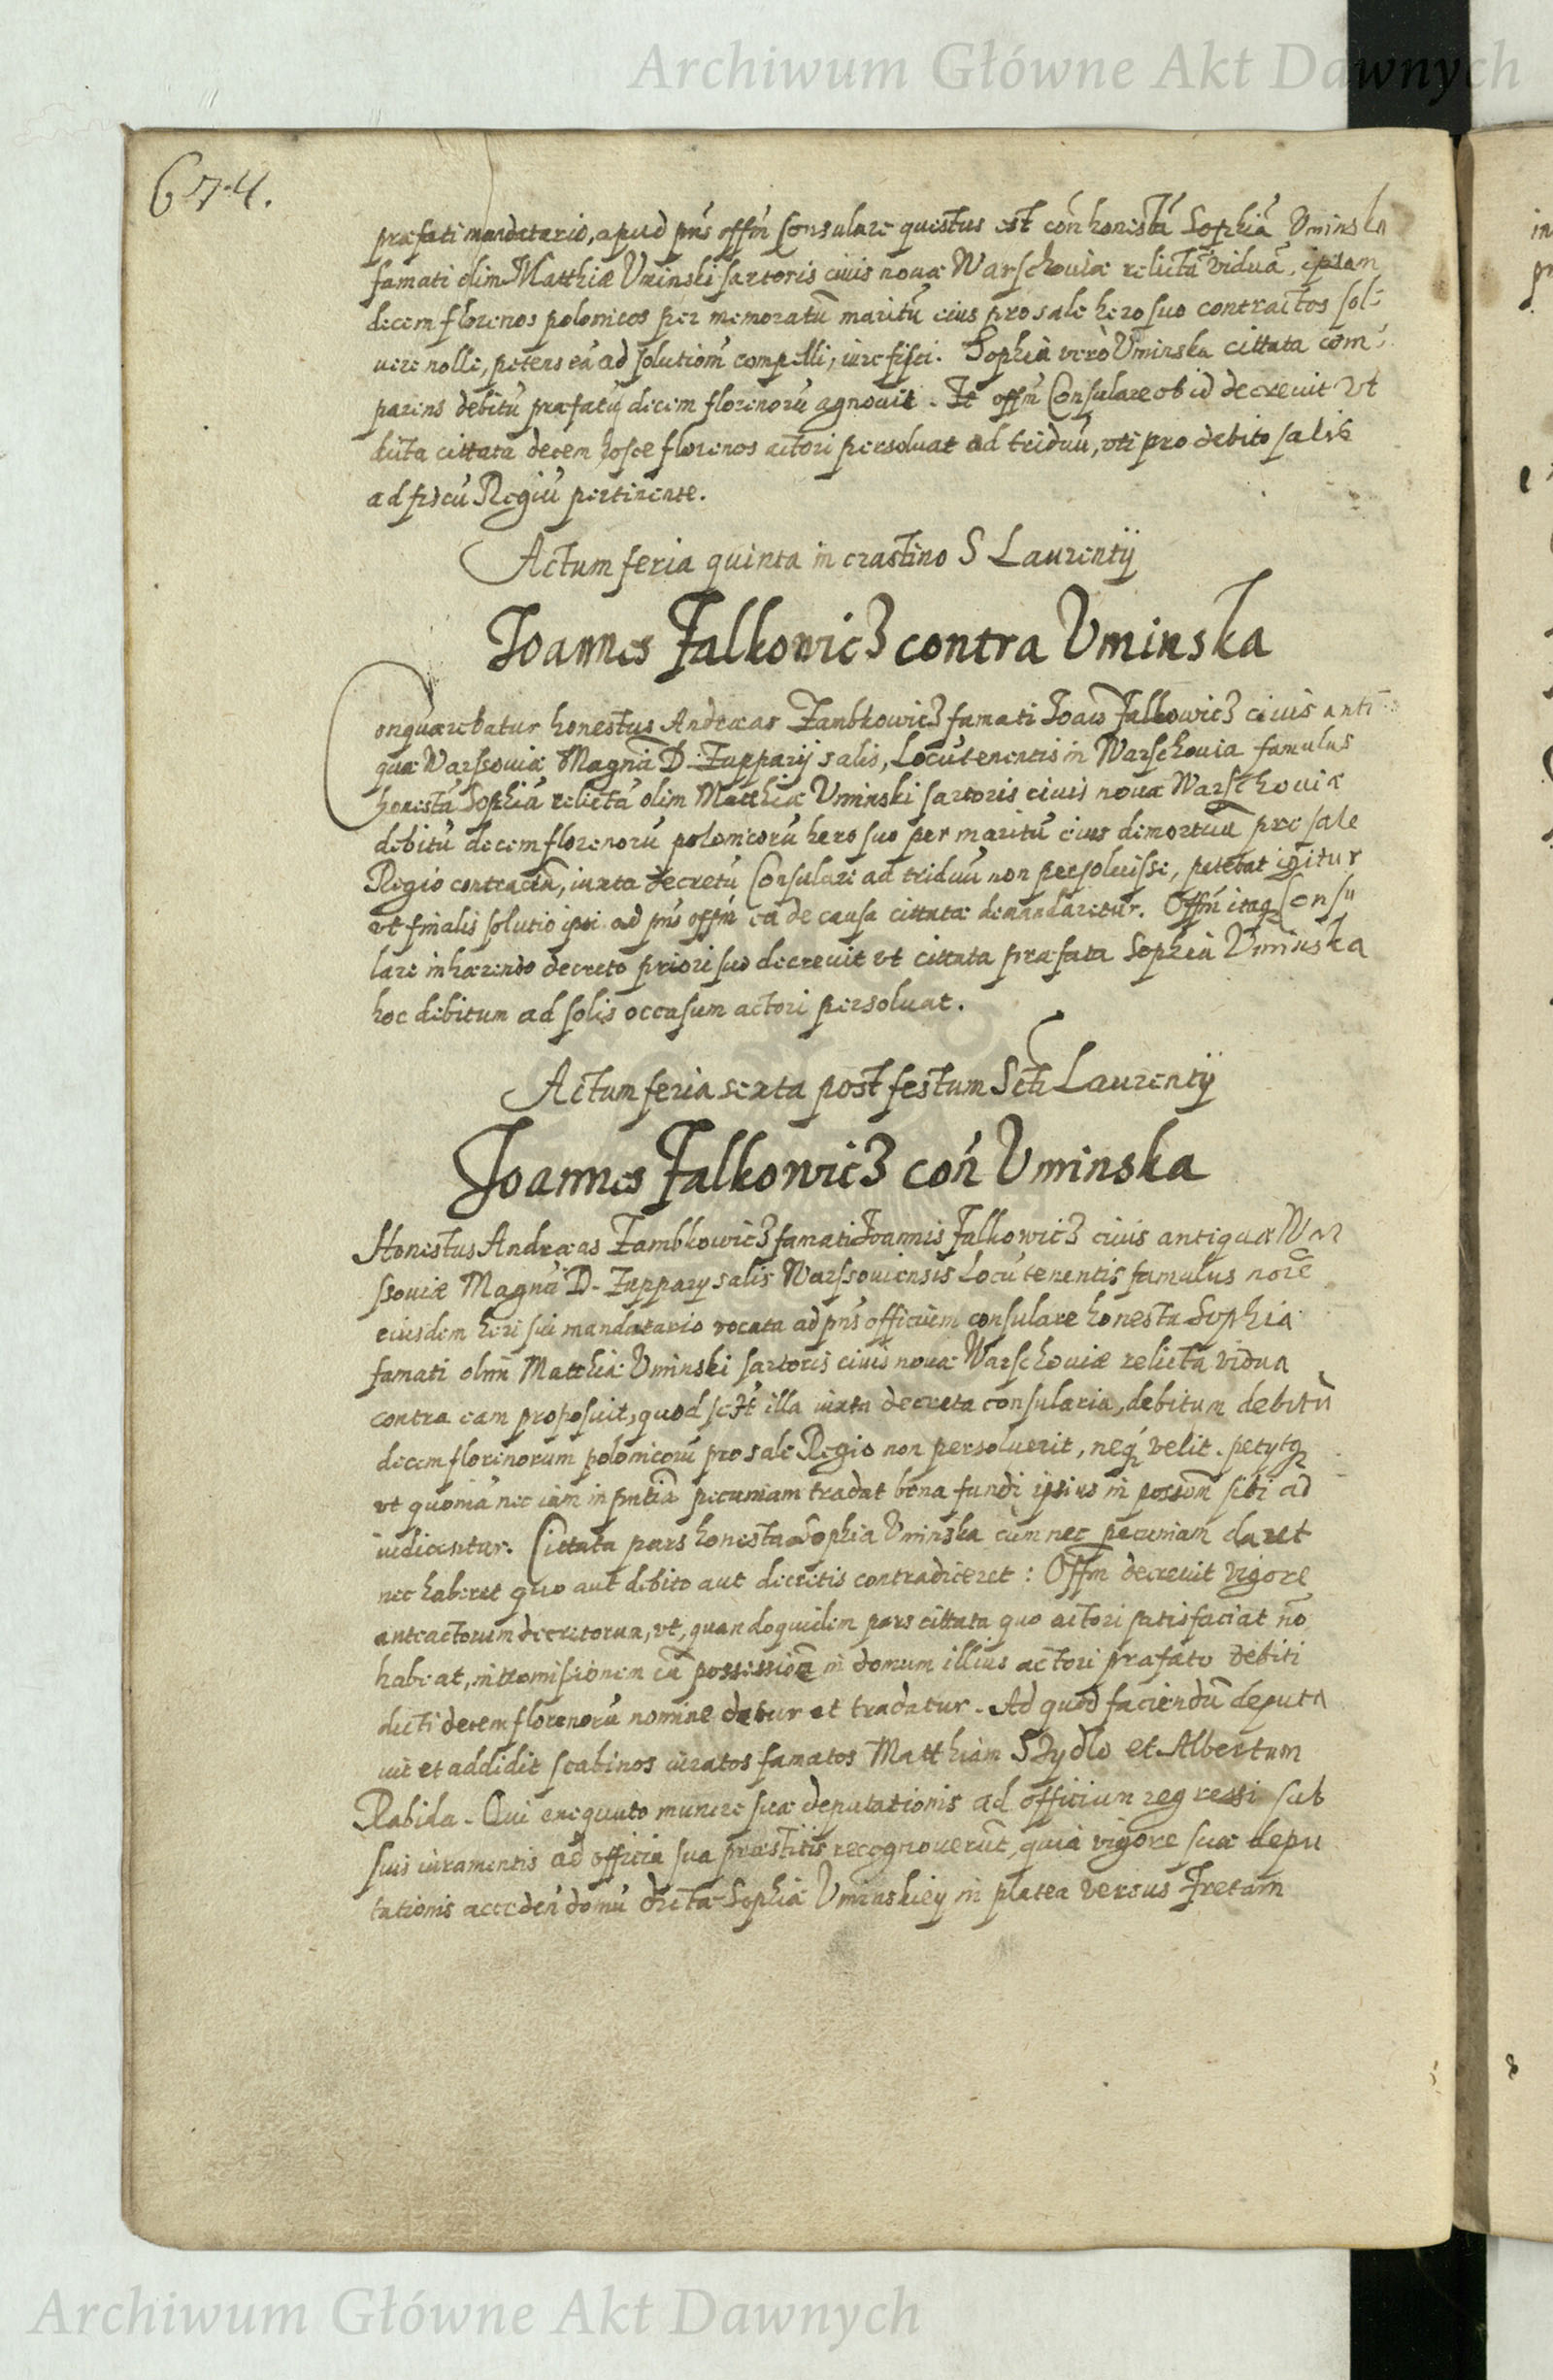 Archiwum Główne Akt Dawnych
674.
præfati mandatario, apud pñs offm̃ Consulare questus est coñ honestã Sophiã Vminska
famati olim Matthiæ Vminski sartoris ciuis nouæ Warschouiæ relictã viduã, ipsam
decem florenos polonicos per memoratũ maritũ eius pro sale hero suo contractos sol-
uere nolle, petens eã ad solutiom̃ compelli, iure fisci. Sophia verò Vminska cittata com-
parens debitũ præfatũ decem florenorũ agnouit. Et offm̃ Consulare ob id decreuit vt
dicta cittata decem hosce florenos actori persoluat ad triduũ, vti pro debito salis
ad fiscũ Regiũ pertinente.
Actum feria quinta in crastino S Laurentij
Joannes Falkowicz contra Vminska
Conquærebatur honestus Andreas Zambkowicz famati Joãis Falkowicz ciuis anti-
quæ Warssouiæ Magnci D. Zupparij salis, Locũtenentis in Warschouia famulus
honestã Sophiã relictã olim Matthiæ Vminski sartoris ciuis nouæ Warschouiæ
debitũ decem florenorũ polonicorũ hero suo per maritũ eius demortuũ pro sale
Regio contractũ, iuxta decretũ Consulare ad triduũ non persoluisse, petebat igitur
vt finalis solutio ipsi ad pñs offm̃ ea de causa cittatæ demandaretur. Offm̃ itaq Consu
lare inhærendo decreto priori suo decreuit vt cittata præfata Sophia Vminska
hoc debitum ad solis occasum actori persoluat.
Actum feria sexta post festum Scti Laurentij
Joannes Falkowicz coñ Vminska
Honestus Andreas Zambkowicz famati Joannis Falkowicz ciuis antiquæ War
ssouiæ Magnci D. Zuppary salis Warssouiensis Locũtenentis famulus noĩe
eiusdem heri sui mandatario vocata ad pñs officium consulare honesta Sophia
famati olim Matthiæ Vminski sartoris ciuis nouæ Warschouiæ relicta vidua
contra eam proposuit, quod illa iuxta decreta consularia, debitum debitũ
decem florenorum polonicorũ pro sale Regio non persoluerit, neq velit. petytq
vt quoniã nec iam in pñtia pecuniam tradat bona fundi ipsius in possom̃ sibi ad
iudicentur. Cittata pars honesta Sophia Vminska cum nec pecuniam daret
nec haberet quo aut debito aut decretis contradiceret: Offm̃ decreuit vigore
anteactorum decretorum, vt, quandoquidem pars cittata quo actori satisfaciat nõ
habeat, intromissionem in domum illius actori præfato debiti
dicti decem florenorũ nomine detur et tradatur. Ad quod faciendũ deputa
uit et addidit scabinos iuratos famatos Matthiam Szydlo et Albertum
Rabida. Qui exequuto munere suæ deputationis ad officium regressi sub
suis iuramentis ad officia sua præstitis recognouerũt, quia vigore suæ depu
tationis acceden̄ domũ Sophiæ Vminskiey in platea versus Fretam
Archiwum Główne Akt Dawnych